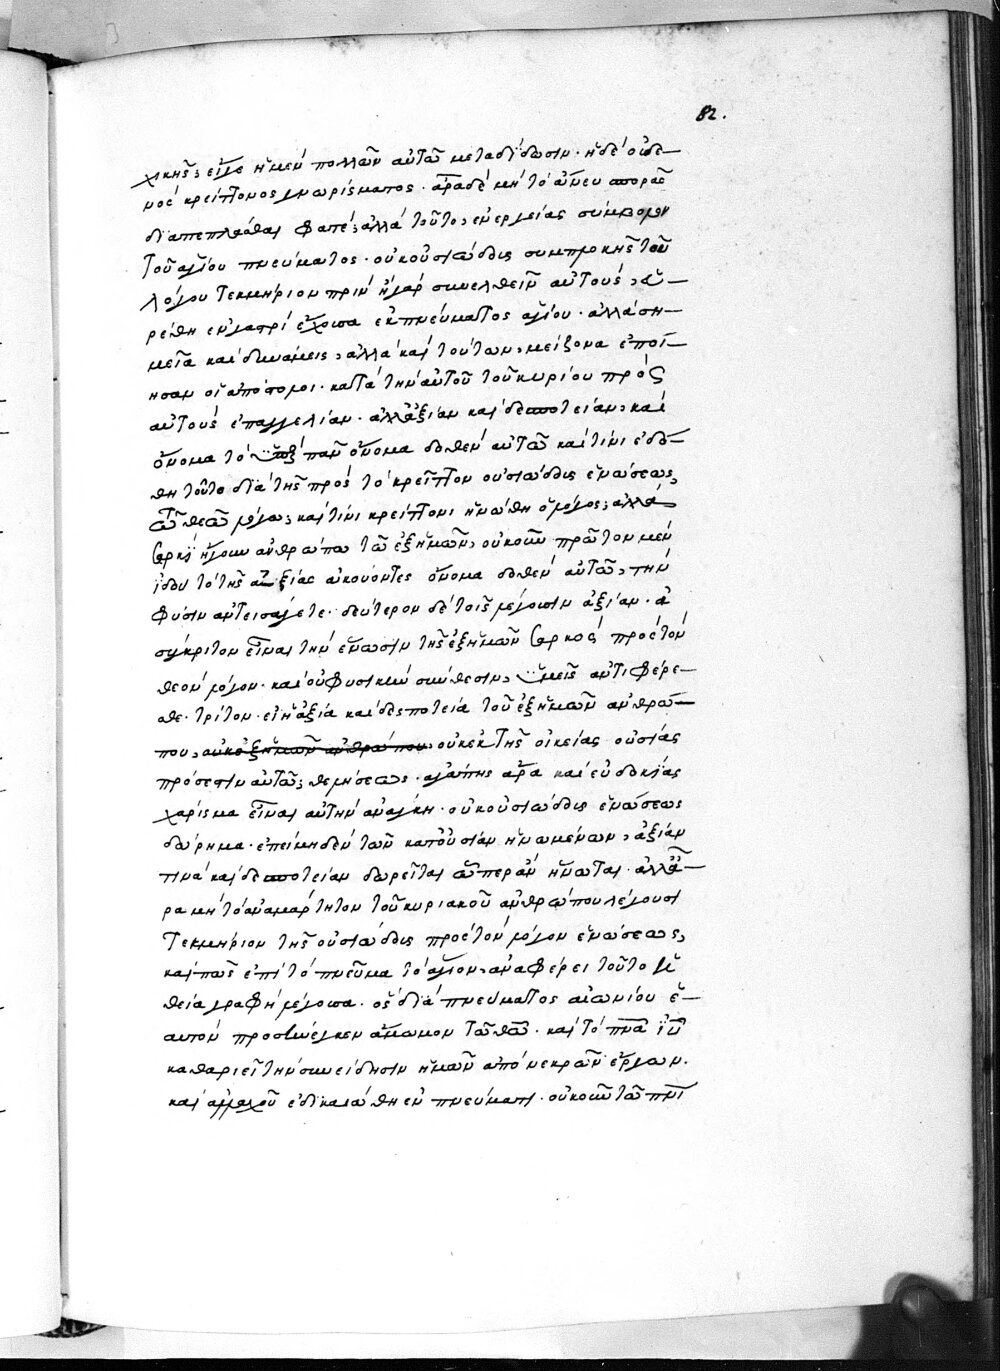 82.
χικῆς; εἶγε ἡ μὲν πολλῶν αὐτῶ μεταδίδωσιν· ἡ δὲ οὐδε-
νὸς κρείττονος γνωρίσματος· ἆρα δὲ μὴ τὸ ἄνευ σπορᾶς
διαπεπλᾶσθαι φατέ; ἀλλὰ τοῦτο ἐνεργείας σύμβολον
τοῦ ἁγίου πνεύματος· οὐκ οὐσιώδους συμπλοκῆς τοῦ
λόγου τεκμήριον πρὶν ἢ γὰρ συνελθεῖν αὐτοὺς, εὑ-
ρέθη ἐν γαστρὶ ἔχουσα ἐκ πνεύματος ἁγίου· ἀλλὰ ση-
μεῖα καὶ δυνάμεις, ἀλλὰ καὶ τούτων μείζονα ἐποί-
ησαν οἱ ἀπόστολοι· κατὰ τὴν αὐτοῦ τοῦ κυρίου πρὸς
αὐτοὺς ἐπαγγελίαν· ἀλλ' ἀξίαν καὶ δεσποτείαν, καὶ
ὄνομα τὸ ὑπὲρ πᾶν ὄνομα δοθὲν αὐτῶ καὶ τίνι ἐδό-
θη τοῦτο διὰ τῆς πρὸς τὸ κρεῖττον οὐσιώδους ἑνώσεως,
τῶ θεῶ λόγω; καὶ τίνι κρείττονι ἡνώθη ὁ λόγος; ἀλλὰ
σαρκὶ ἤγουν ἀνθρώπω τῶ ἐξ ἡμῶν, οὐκοῦν πρῶτον μὲν
ἰδοὺ τὸ τῆς ἀξίας ἀκούοντες ὄνομα δοθὲν αὐτῶ, τὴν
φύσιν ἀντεισάγετε· δεύτερον δὲ τοῖς λέγουσιν ἀξίαν· ἀ
σύγκριτον εἶναι τὴν ἕνωσιν τῆς ἐξ ἡμῶν σαρκὸς πρὸς τὸν
θεὸν λόγον· καὶ οὐ φυσικὴν σύνθεσιν, ὑμεῖς ἀντιφέρε-
σθε· τρίτον· εἰ ἡ ἀξία καὶ δεσποτεία τοῦ ἐξ ἡμῶν ἀνθρώ-
που, οὐκ ἐξ ἡμῶν ἀνθρώπου, οὐκ ἐκ τῆς οἰκείας οὐσίας
πρόσεστιν αὐτῶ; θελήσεως· ἀγάπης ἄρα καὶ εὐδοκίας
χάρισμα εἶναι αὐτὴν ἀνάγκη· οὐκ οὐσιώδους ἑνώσεως
δώρημα· ἐπεὶ μηδὲν τῶν κατ' οὐσίαν ἡνωμένων, ἀξίαν
τινὰ καὶ δεσποτείαν δωρεῖται ᾧπερ ἂν ἥνωται· ἀλλ' ἆ-
ρα μὴ τὸ ἀναμάρτητον τοῦ κυριακοῦ ἀνθρώπου λέγουσι
τεκμήριον τῆς οὐσιώδους πρὸς τὸν λόγον ἑνώσεως,
καὶ πῶς ἐπὶ τὸ πνεῦμα τὸ ἅγιον, ἀναφέρει τοῦτο ἡ
θεία γραφὴ λέγουσα· ὃς διὰ πνεύματος αἰωνίου ἑ-
αυτὸν προσήνεγκεν ἄμωμον τῶ θῶ· καὶ τὸ πνα ἰυ
καθαριεῖ τὴν συνείδησιν ἡμῶν ἀπὸ νεκρῶν ἔργων.
καὶ ἀλλαχοῦ ἐδικαιώθη ἐν πνεύματι· οὐκοῦν τῶ πνι